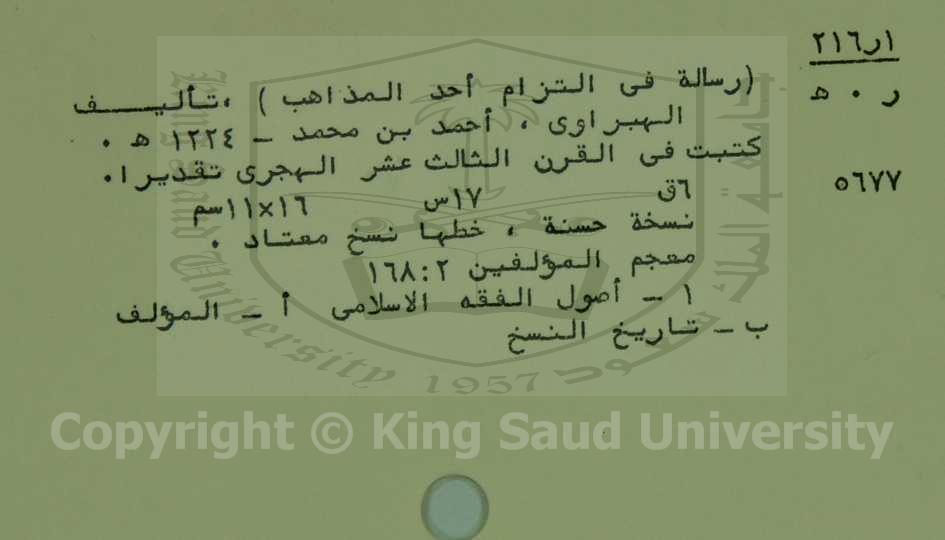 ٢١٦ر١
(رسالة فى التزام أحد المذاهب) ،تأليـــف
ر ٠ ه
الهبراوى ، أحمد بن محمد ــ ١٢٢٤ ه ٠
كتبت فى القرن الثالث عشر الهجرى تقديرا٠
٥٦٧٧
٦ق ١٧س ١٦×١١سم
نسخة حسنة ، خطها نسخ معتاد ٠
معجم المؤلفين ١٦٨:٢
١ ــ أصول الفقه الاسلامى أ ــ المؤلف
ب ــ تاريخ النسخ
University 1957
Copyright © King Saud University